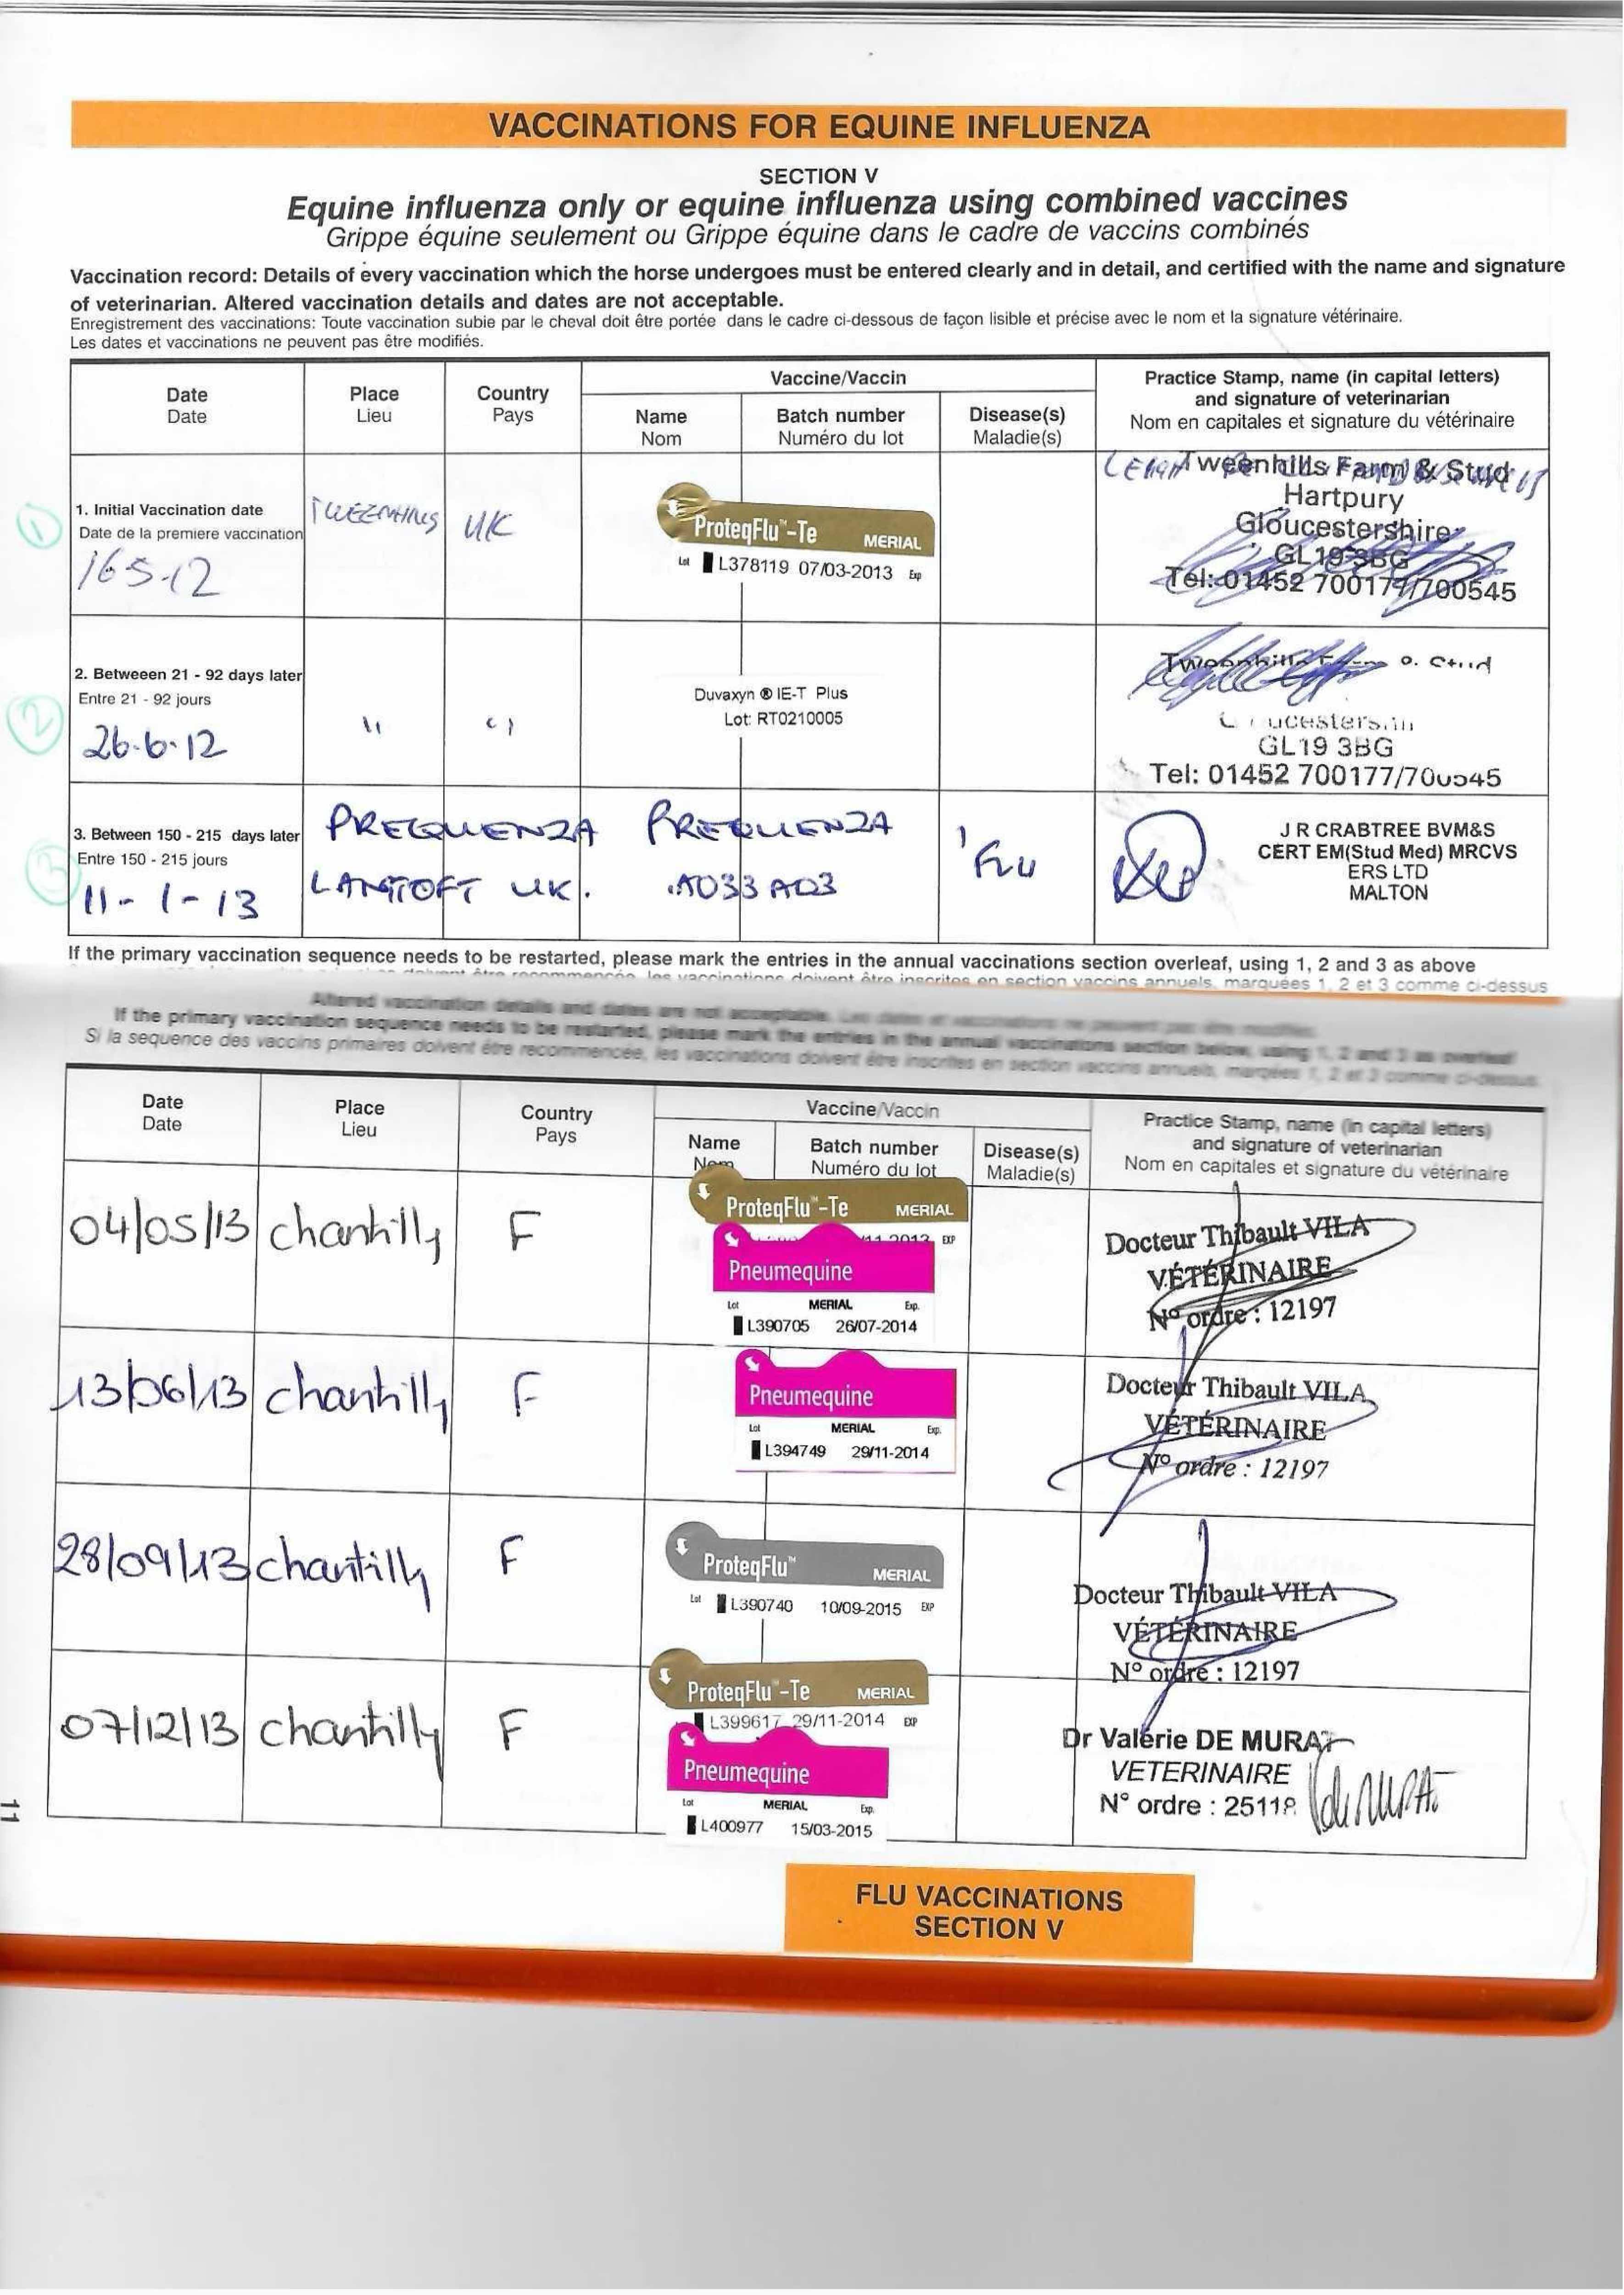 VACCINATIONS FOR EQUINE INFLUENZA
SECTION V
Equine influenza only or equine influenza using combined vaccines
Grippe équine seulement ou Grippe équine dans le cadre de vaccins combinés
Vaccination record: Details of every vaccination which the horse undergoes must be entered clearly and in detail, and certified with the name and signature
of veterinarian. Altered vaccination details and dates are not acceptable.
Enregistrement des vaccinations: Toute vaccination subie par le cheval doit être portée dans le cadre ci-dessous de façon lisible et précise avec le nom et la signature vétérinaire.
Les dates et vaccinations ne peuvent pas être modifiés.
Date
Date
Place
Lieu
Country
Pays
Vaccine/Vaccin
Name
Nom
Batch number
Numéro du lot
Disease(s)
Maladie(s)
Practice Stamp, name (in capital letters)
and signature of veterinarian
Nom en capitales et signature du vétérinaire
1
1. Initial Vaccination date
Date de la premiere vaccination
16 5 12
UK
ProteqFlu™-Te MERIAL
Lot L378119 07/03-2013 Exp
Tweenhills Farm & Stud
Hartpury
Gloucestershire
GL19 3BG
Tel: 01452 700177/700545
2
2. Betweeen 21 - 92 days later
Entre 21 - 92 jours
26.6.12
"
"
Duvaxyn ® IE-T Plus
Lot: RT0210005
GL19 3BG
Tel: 01452 700177/700545
3
3. Between 150 - 215 days later
Entre 150 - 215 jours
11-1-13
PREQUENZA
LANGTOFT UK.
PREQUENZA
A033 A03
FLU
J R CRABTREE BVM&S
CERT EM(Stud Med) MRCVS
ERS LTD
MALTON
If the primary vaccination sequence needs to be restarted, please mark the entries in the annual vaccinations section overleaf, using 1, 2 and 3 as above
doivent être recommencée, les vaccinations doivent être inscrites en section vaccins annuels, marquées 1, 2 et 3 comme ci-dessus
Altered vaccination details and dates are not acceptable. Les dates et vaccinations ne peuvent pas être modifiés.
If the primary vaccination sequence needs to be restarted, please mark the entries in the annual vaccinations section below, using 1, 2 and 3 as overleaf
Si la sequence des vaccins primaires doivent être recommencée, les vaccinations doivent être inscrites en section vaccins annuels, marqées 1, 2 et 3 comme ci-dessus.
Date
Date
Place
Lieu
Country
Pays
Vaccine/Vaccin
Name
Nom
Batch number
Numéro du lot
Disease(s)
Maladie(s)
Practice Stamp, name (in capital letters)
and signature of veterinarian
Nom en capitales et signature du vétérinaire
04/05/13 chantilly F
ProteqFlu™-Te MERIAL
EXP
Pneumequine
Lot MERIAL Exp.
L390705 26/07-2014
Docteur Thibault VILA
VÉTÉRINAIRE
N° ordre : 12197
13/06/13 chantilly F
Pneumequine
Lot MERIAL Exp.
L394749 29/11-2014
Docteur Thibault VILA
VÉTÉRINAIRE
N° ordre : 12197
28/09/13 chantilly F
ProteqFlu™ MERIAL
Lot L390740 10/09-2015 EXP
Docteur Thibault VILA
VÉTÉRINAIRE
N° ordre : 12197
07/12/13 chantilly F
ProteqFlu™-Te MERIAL
L399617 29/11-2014 EXP
Pneumequine
Lot MERIAL Exp.
L400977 15/03-2015
Dr Valérie DE MURAT
VETERINAIRE
N° ordre : 25118
11
FLU VACCINATIONS
SECTION V